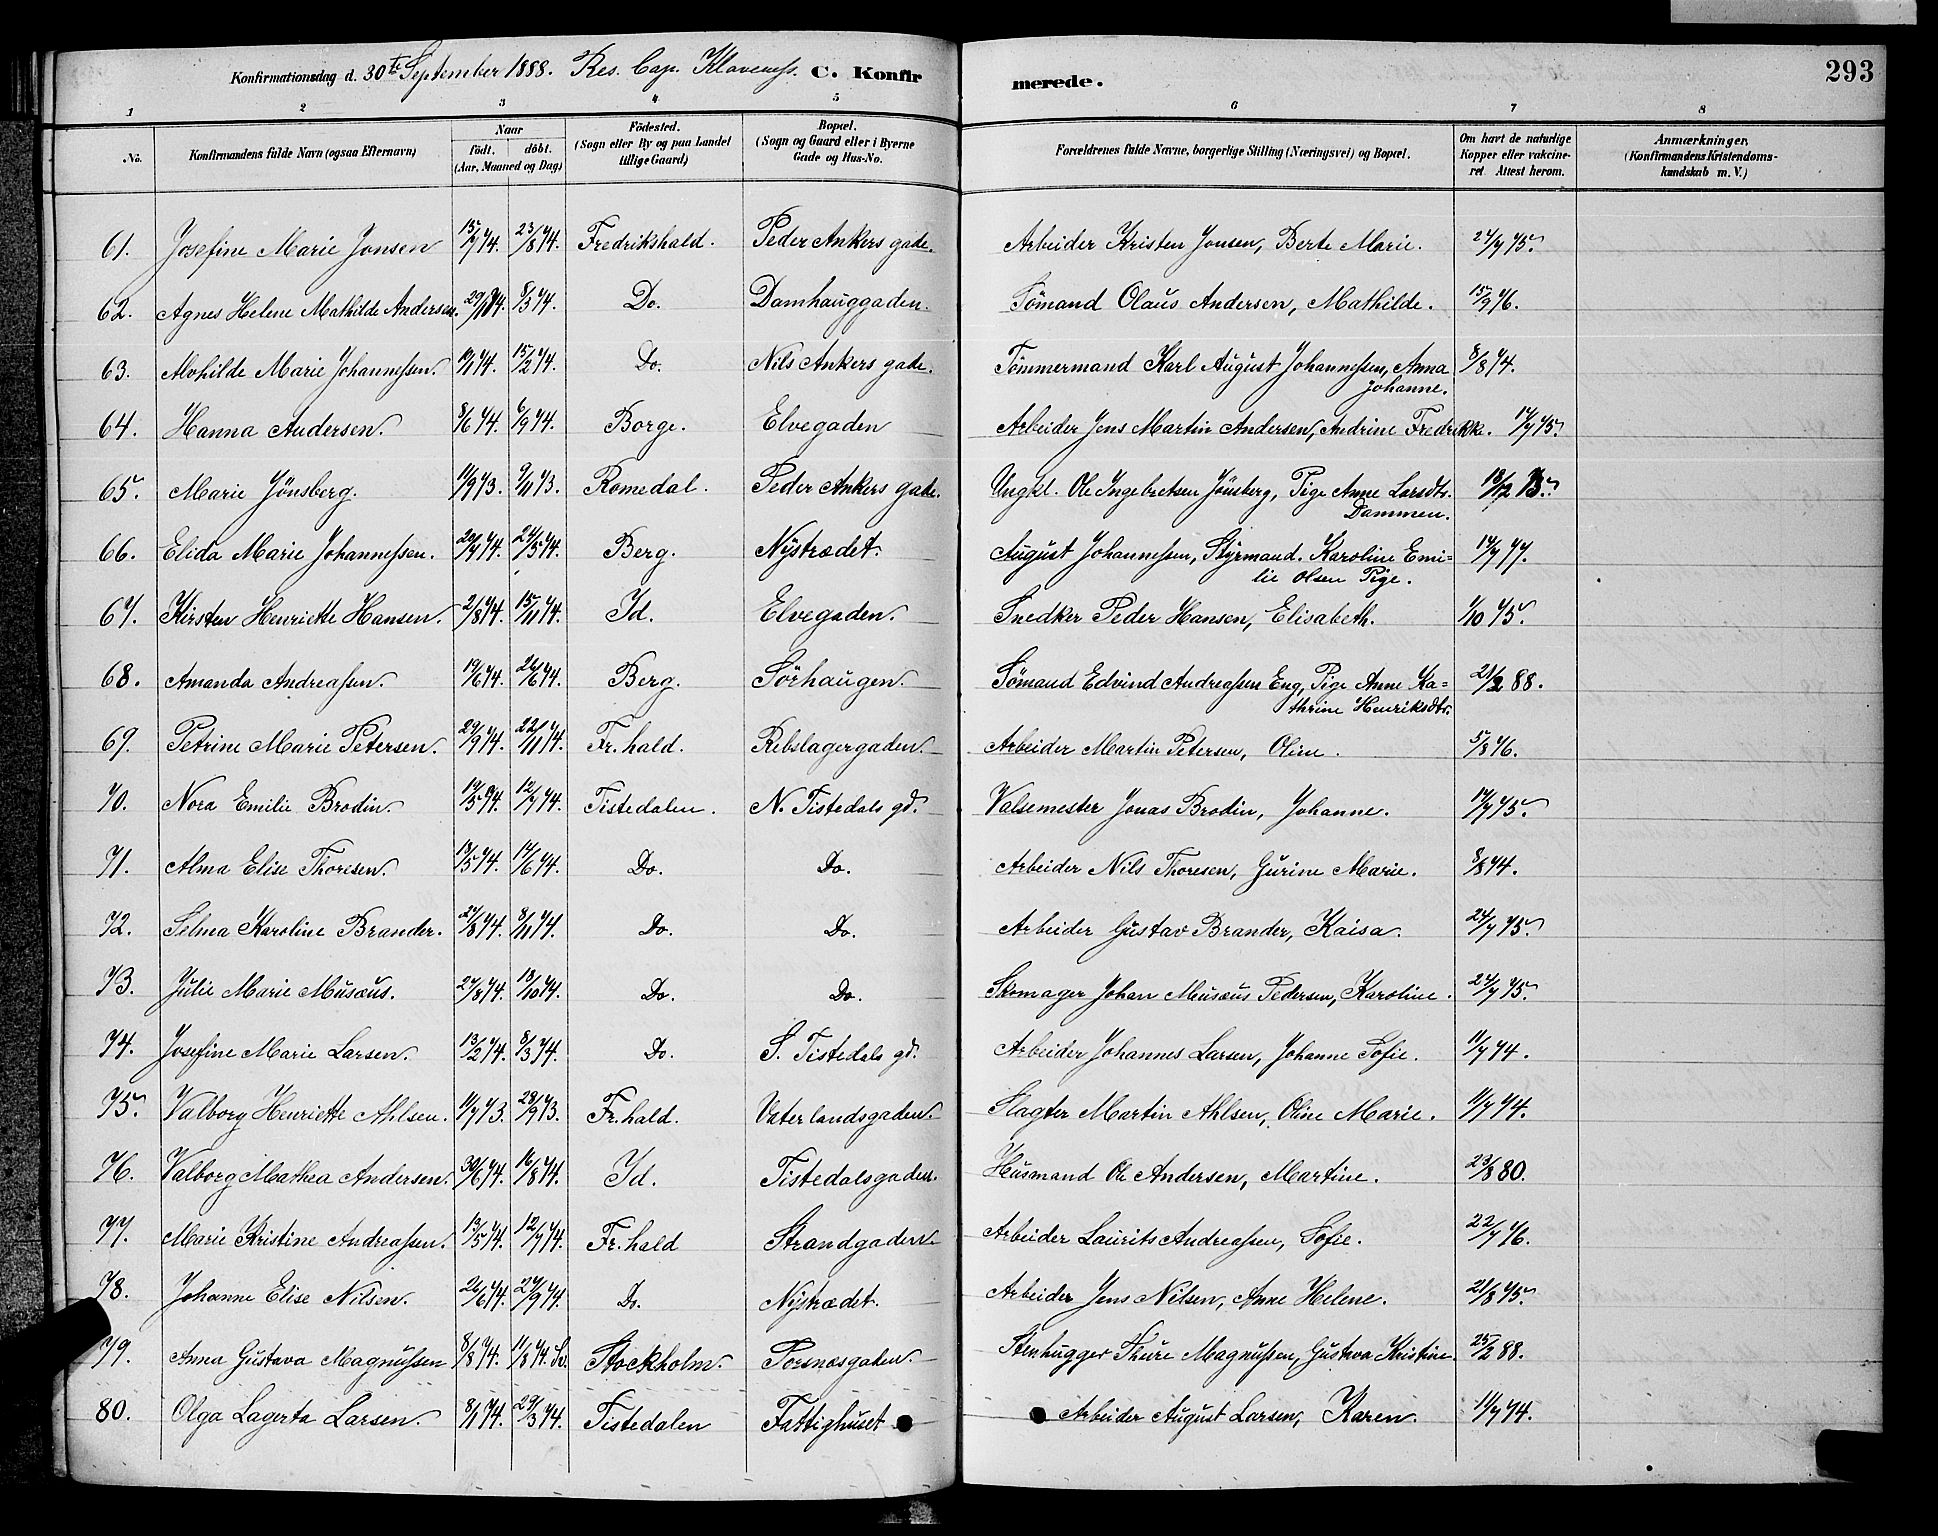 Konfirmationsdag d. 30te September 1888. Res. Cap. Klaveness. C. Konfirmerede. 293
1 2 3 4 5 6 7 8
No. Konfirmandens fulde Navn (ogsaa Efternavn) Naar født. døbt. (Aar, Maaned og Dag) Födested. (Sogn eller By og paa Landet tillige Gaard) Bopæl. (Sogn og Gaard eller i Byerne Gade og Hus-No. Forældrenes fulde Navne, borgerlige Stilling (Næringsvei) og Bopæl. Om havt de naturlige Kopper eller vakcineret. Attest herom. Anmærkninger. (Konfirmandens Kristendomskundskab m. V.)
61. Josefine Marie Jonsen 15/7 74. 23/8 74. Fredrikshald. Peder Ankers gade. Arbeider Kristen Jonsen, Berte Marie. 24/7 75.
62. Agnes Helene Mathilde Andersen. 29/1 74. 8/3 74. Do. Damhauggaden. Sømand Olaus Andersen, Mathilde. 15/9 76.
63. Alvhilde Marie Johannessen. 10/1 74. 15/2 74. Do. Nils Ankers gade. Tømmermand Karl August Johannessen, Anna Johanne. 8/8 74.
64. Hanna Andersen. 8/6 74. 6/9 74. Borge. Elvegaden Arbeider Jens Martin Andersen, Andrine Fredrikke. 17/7 75.
65. Marie Jönsberg. 11/9 73. 9/11 73. Romedal. Peder Ankers gade. Ungkl. Ole Ingebretsen Jönsberg, Pige Anne Larsdtr. Dammen. 18/12 75.
66. Elida Marie Johannessen. 20/4 74. 24/5 74. Berg. Nystrædet. August Johannessen, Styrmand. Karoline Emilie Olsen Pige. 14/7 77.
67. Kirsten Henriette Hansen. 2/8 74. 15/11 74. Id. Elvegaden. Snedker Peder Hansen, Elisabeth. 1/10 75.
68. Amanda Andreassen. 19/6 74. 26/6 74. Berg. Sörhaugen. Sømand Edvind Andreassen Eng, Pige Anne Kathrine Henriksdtr. 21/2 88.
69. Petrine Marie Petersen. 29/9 74. 22/11 74. Fr.hald. Rebslagergaden. Arbeider Martin Petersen, Oline. 5/8 76.
70. Nora Emilie Brodin. 19/5 74. 12/7 74. Tistedalen. N. Tistedals gd. Valsemester Jonas Brodin, Johanne. 17/7 75.
71. Alma Elise Thoresen. 13/5 74. 14/6 74. Do. Do. Arbeider Nils Thoresen, Gurine Marie. 8/8 74.
72. Selma Karoline Brander. 27/8 74. 8/11 74. Do. Do. Arbeider Gustav Brander, Kaisa. 24/7 75.
73. Julie Marie Musæus. 27/8 74. 18/10 74. Do. Do. Skomager Johan Musæus Pedersen, Karoline. 24/7 75.
74. Josefine Marie Larsen. 13/2 74. 8/3 74. Do. S. Tistedals gd. Arbeider Johannes Larsen, Johanne Sofie. 11/7 74.
75. Valborg Henriette Ahlsen. 11/7 73. 28/9 73. Fr.hald. Vaterlandsgaden. Slagter Martin Ahlsen, Oline Marie. 11/7 74.
76. Valborg Mathea Andersen. 30/6 74. 16/8 74. Id. Tistedalsgaden. Husmand Ole Andersen, Martine. 23/8 80.
77. Marie Kristine Andreassen. 13/5 74. 12/7 74. Fr.hald Strandgaden. Arbeider Laurits Andreassen, Sofie. 22/7 76.
78. Johanne Elise Nilsen. 26/6 74. 27/9 74. Do. Nystrædet. Arbeider Jens Nilsen, Anne Helene. 21/8 75.
79. Anna Gustava Magnussen 8/8 74. 11/8 74. Sv. Stockholm. Torsnæsgaden. Stenhugger Thure Magnussen, Gustava Kristine. 25/2 88.
80. Olga Lagerta Larsen. 8/1 74. 29/3 74. Tistedalen Fattighuset Arbeider August Larsen, Karen. 11/7 74.